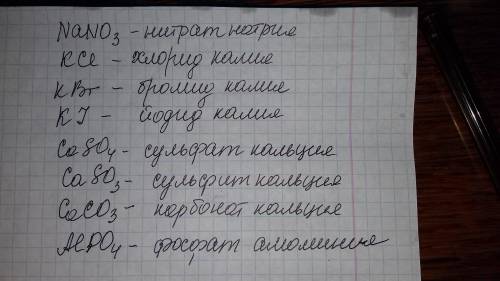 NaNO3 - нитрат натрия
KCl - хлорид калия
KBr - бромид калия
KI - йодид калия
CaSO4 - сульфат кальция
CaSO3 - сульфит кальция
CaCO3 - карбонат кальция
AlPO4 - фосфат алюминия